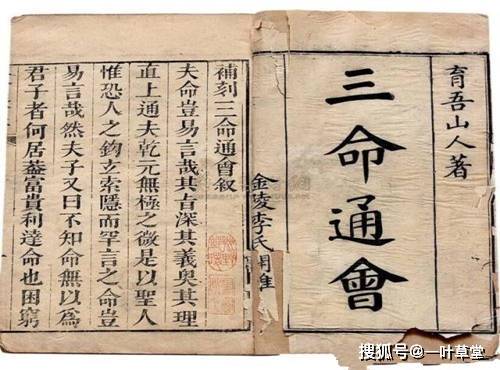 育吾山人著
三命通會
金陵李氏
補刻三命通會叙
夫命豈易言哉其旨深其義奧其理
直上通夫乾元無極之微是以聖人
惟恐人之鈎立索隱而罕言之命豈
易言哉然夫子又曰不知命無以爲
君子者何居葢富貴利達命也困窮
搜狐号@一叶草堂